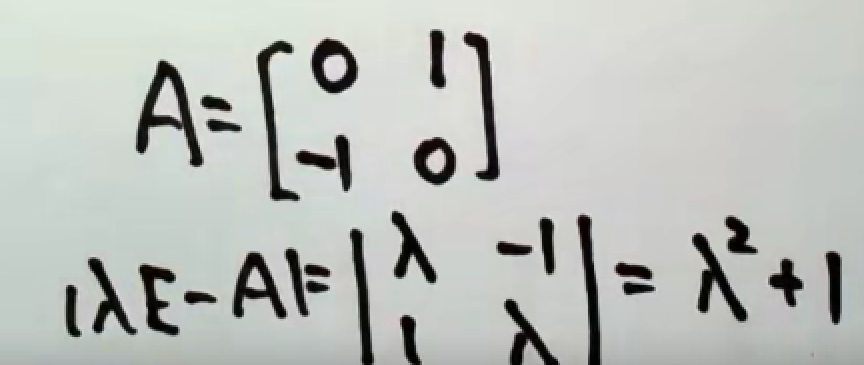 A = [0 1
-1 0]
|λE - A| = |λ -1
1 λ| = λ² + 1